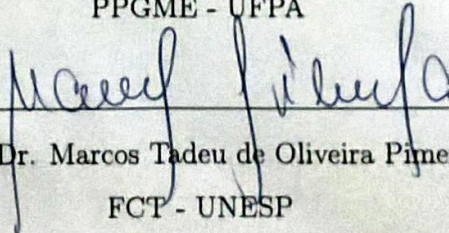 PPGME - UFPA
Dr. Marcos Tadeu de Oliveira Pime
FCT - UNESP